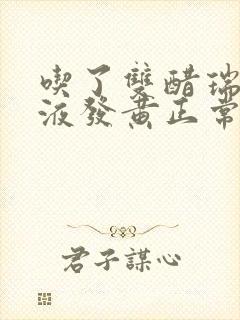 喫了雙醋瑞
液發黃正常
君子謀心